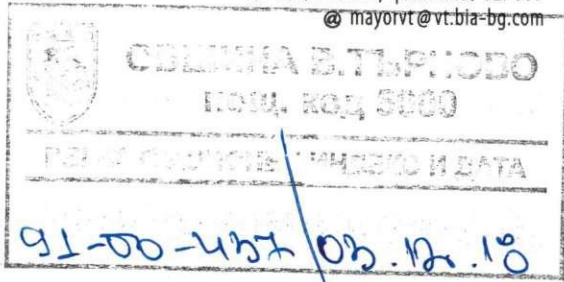 @ mayorvt@vt.bia-bg.com
ОБЩИНА В.ТЪРНОВО
пощ. код 5000
ИНДЕКС И ДАТА
91-00-437/03.12.18